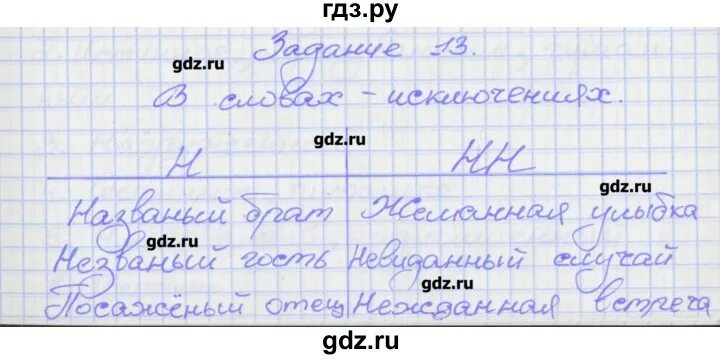 гдз.ру
Задание 13.
gdz.ru
В словах - исключениях.
gdz.ru
Н НН
gdz.ru
Названый брат Жеманная улыбка
gdz.ru
Незваный гость Невиданный случай
Посажёный отец Нежданная встреча
gdz.ru
gdz.ru